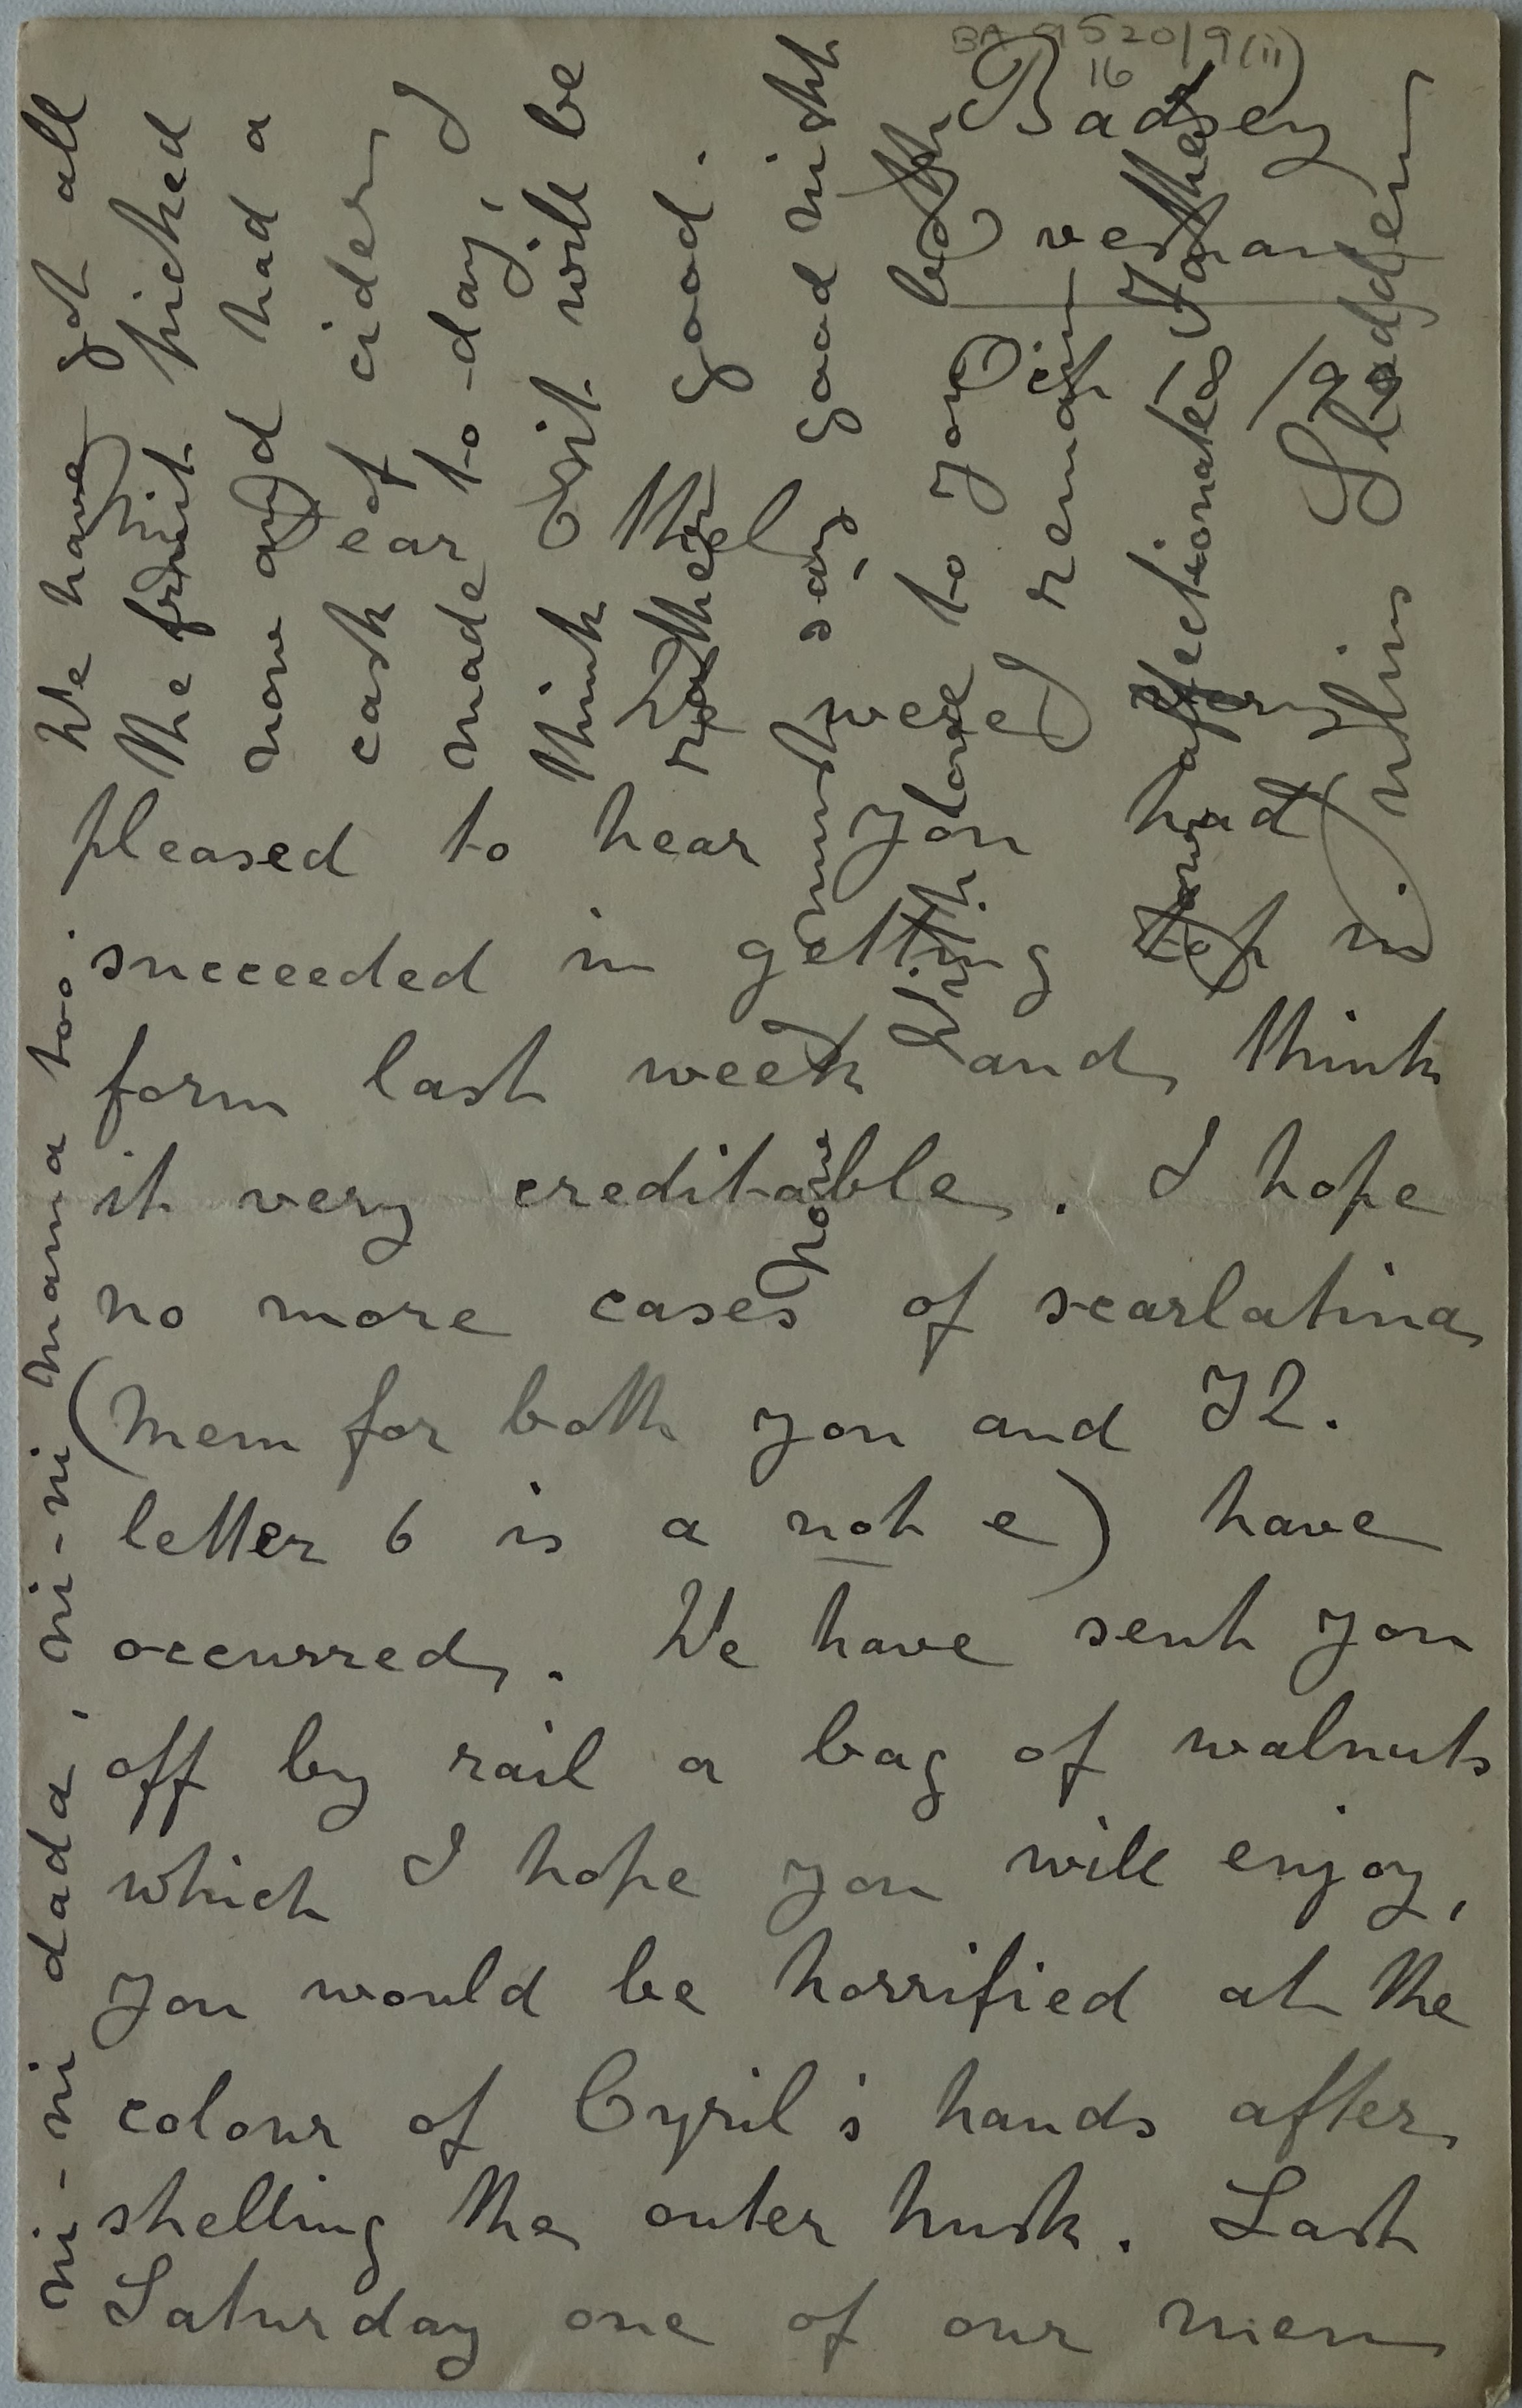 BA 9520/9(ii)
16
Badsey
Evesham
Oct /9
Dear Ethel
We were very
pleased to hear you had
succeeded in getting top in
form last week and think
it very creditable. I hope
no more cases of scarlatina
(Mem for both you and J2.
letter 6 is a not e) have
occurred. We have sent you
off by rail a bag of walnuts
which I hope you will enjoy,
you would be horrified at the
colour of Cyril's hands after
shelling the outer husk. Last
Saturday one of our men
We have got all
the fruit picked
now and had a
cask of cider
made to-day, I
think it will be
rather good.
Now I must say good night
With love to you both
I remain
Your affectionate Father
Julius Sladden
ni-ni dada, ni-ni mama too.